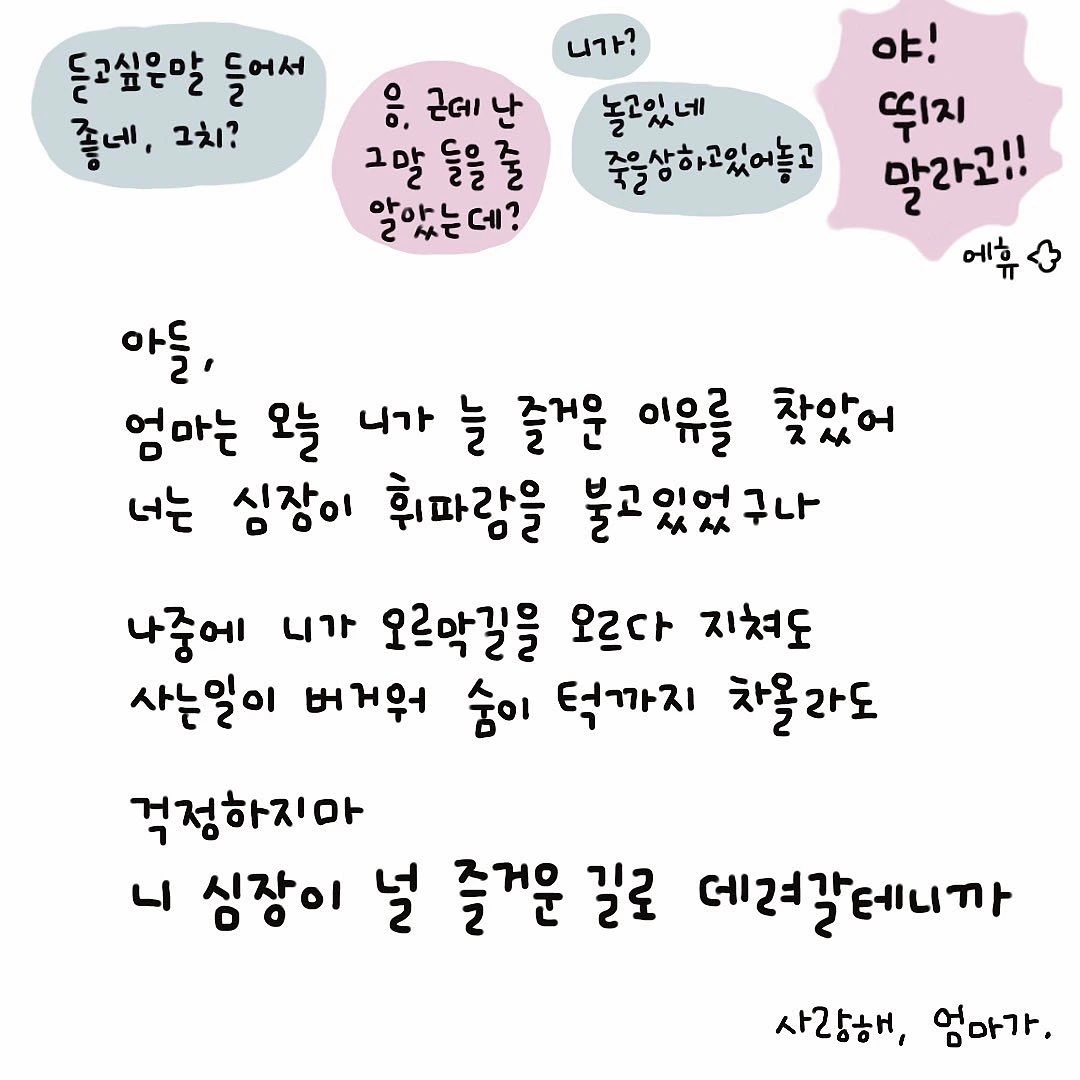 듣고싶은말 들어서
좋네, 그치?
응, 근데 난
그말 들을 줄
알았는데?
니가?
놀고있네
죽을상하고있어놓고
야!
뛰지
말라고!!
에휴
아들,
엄마는 오늘 니가 늘 즐거운 이유를 찾았어
너는 심장이 휘파람을 불고있었구나
나중에 니가 오르막길을 오르다 지쳐도
사는일이 버거워 숨이 턱까지 차올라도
걱정하지마
니 심장이 널 즐거운 길로 데려갈테니까
사랑해, 엄마가.